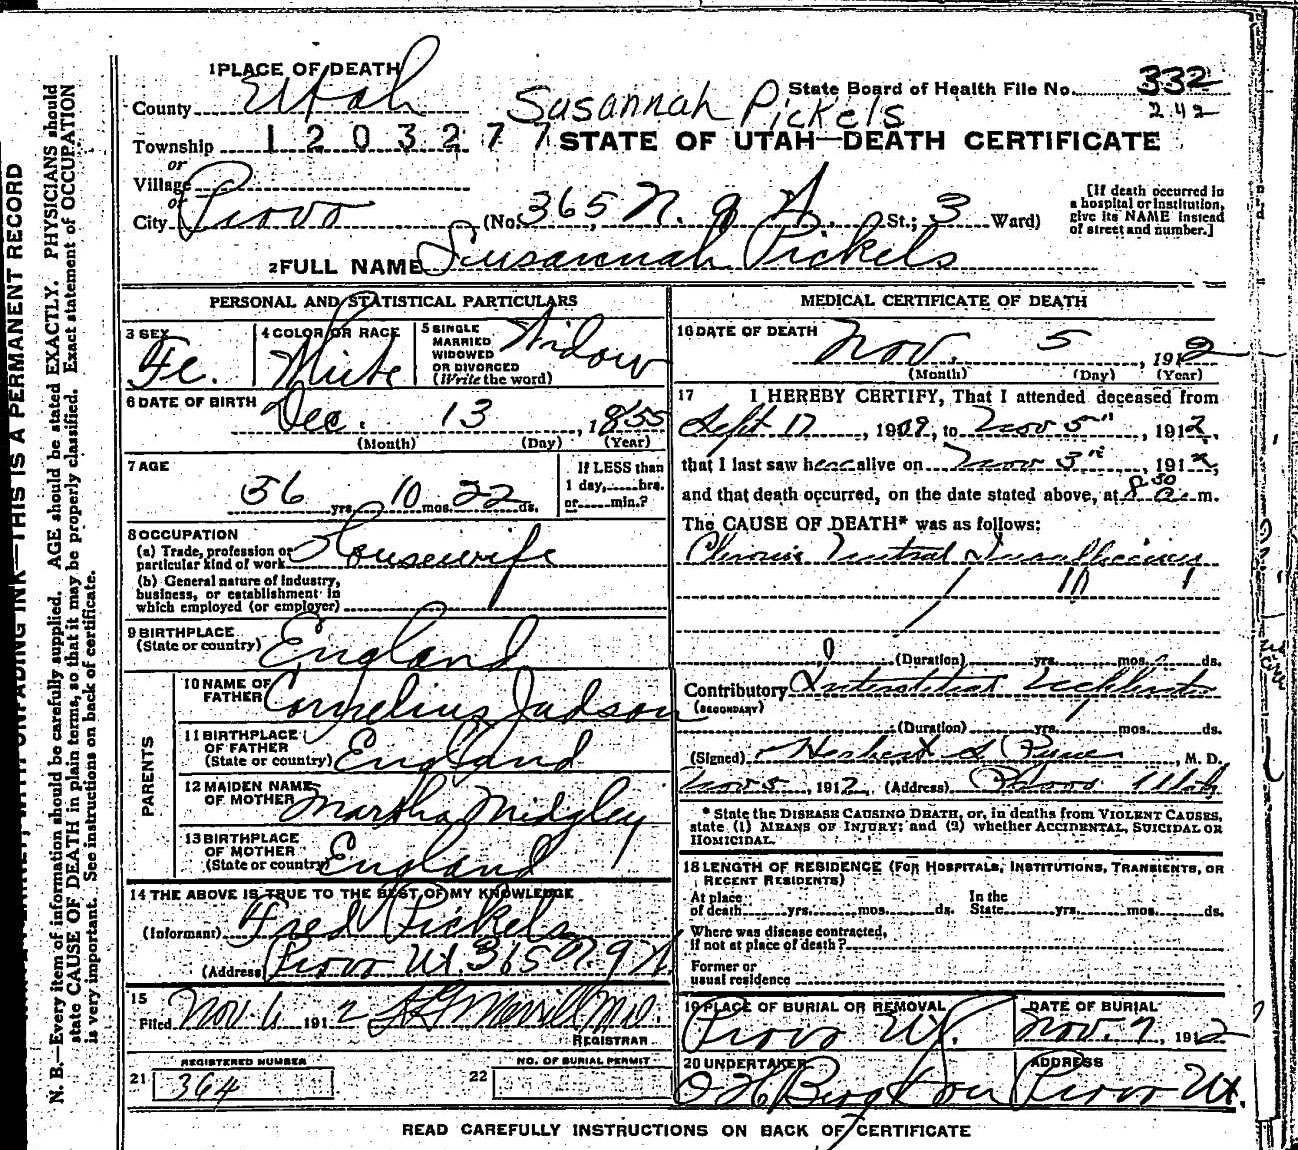 1 PLACE OF DEATH
State Board of Health File No. 332
242
County Utah
Susannah Pickels
Township 1203277
STATE OF UTAH—DEATH CERTIFICATE
or
Village
or
City Provo (No. 365 N. 9 W. St.; 3 Ward)
[If death occurred in a hospital or institution, give its NAME instead of street and number.]
2 FULL NAME Susannah Pickels
PERSONAL AND STATISTICAL PARTICULARS
3 SEX Fe.
4 COLOR OR RACE White
5 SINGLE MARRIED WIDOWED OR DIVORCED (Write the word) Widow
6 DATE OF BIRTH Dec. 13, 1855
(Month) (Day) (Year)
7 AGE
56 yrs. 10 mos. 22 ds.
If LESS than 1 day, hrs. or min.?
8 OCCUPATION
(a) Trade, profession or particular kind of work Housewife
(b) General nature of industry, business, or establishment in which employed (or employer)
9 BIRTHPLACE (State or country) England
PARENTS
10 NAME OF FATHER Cornelius Judson
11 BIRTHPLACE OF FATHER (State or country) England
12 MAIDEN NAME OF MOTHER Martha Midgley
13 BIRTHPLACE OF MOTHER (State or country) England
14 THE ABOVE IS TRUE TO THE BEST OF MY KNOWLEDGE
(Informant) Fred Pickels
(Address) Provo Ut. 365 N. 9 W.
15
Filed Nov. 6 1912 Merrill M.D.
REGISTRAR
REGISTERED NUMBER
21 364
NO. OF BURIAL PERMIT
22
MEDICAL CERTIFICATE OF DEATH
16 DATE OF DEATH
Nov. 5, 1912
(Month) (Day) (Year)
17 I HEREBY CERTIFY, That I attended deceased from
Sept 17, 1909, to Nov 5", 1912,
that I last saw her alive on Nov 3rd, 1912,
and that death occurred, on the date stated above, at 8 30 a. m.
The CAUSE OF DEATH* was as follows:
Chronic
(Duration) yrs. mos. ds.
Contributory Interstitial
(SECONDARY)
(Duration) yrs. mos. ds.
(Signed) Herbert S. M. D.
Nov 5, 1912 (Address) Provo Utah
* State the DISEASE CAUSING DEATH, or, in deaths from VIOLENT CAUSES, state (1) MEANS OF INJURY; and (2) whether ACCIDENTAL, SUICIDAL OR HOMICIDAL.
18 LENGTH OF RESIDENCE (FOR HOSPITALS, INSTITUTIONS, TRANSIENTS, OR RECENT RESIDENTS)
At place of death yrs. mos. ds. In the State yrs. mos. ds.
Where was disease contracted, if not at place of death?
Former or usual residence
19 PLACE OF BURIAL OR REMOVAL Provo Ut.
DATE OF BURIAL Nov. 7, 1912
20 UNDERTAKER
ADDRESS Provo Ut.
READ CAREFULLY INSTRUCTIONS ON BACK OF CERTIFICATE
UNFADING INK—THIS IS A PERMANENT RECORD
N. B.—Every item of information should be carefully supplied. AGE should be stated EXACTLY. PHYSICIANS should
state CAUSE OF DEATH in plain terms, so that it may be properly classified. Exact statement of OCCUPATION
is very important. See instructions on back of certificate.